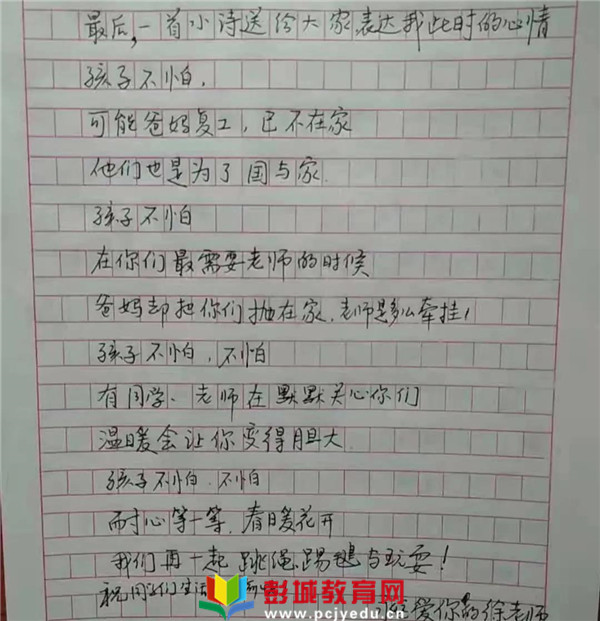 最后,一首小诗送给大家,表达我此时的心情
孩子不怕,
可能爸妈复工,已不在家
他们也是为了国与家.
孩子不怕
在你们最需要老师的时候
爸妈却把你们抛在家,老师是多么牵挂!
孩子不怕,不怕
有同学、老师在默默关心你们
温暖会让你变得胆大.
孩子不怕.不怕
耐心等一等,春暖花开
我们再一起跳绳、踢毽与玩耍!
祝同学们生活
爱你的徐老师
彭城教育网
www.pcjyedu.cn